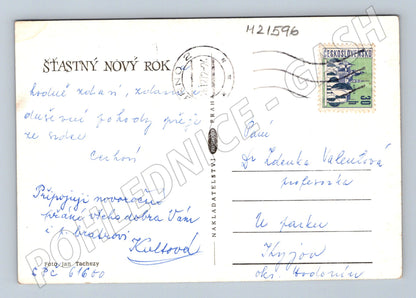 M21596
ŠŤASTNÝ NOVÝ ROK
ČESKOSLOVENSKO
30
hodně zdraví,
duševní pohody přeje
ze srdce
NAKLADATELSTVÍ PRAHA
Paní
Dr Zdenka Valentová
profesorka
U parku
Kyjov
okr. Hodonín
Připojuji novoroční
přání všeho dobra Vám
i p. bratrovi
Kultová
Foto Jan Tachezy
CPC 61600
POHLEDNICE - GASH